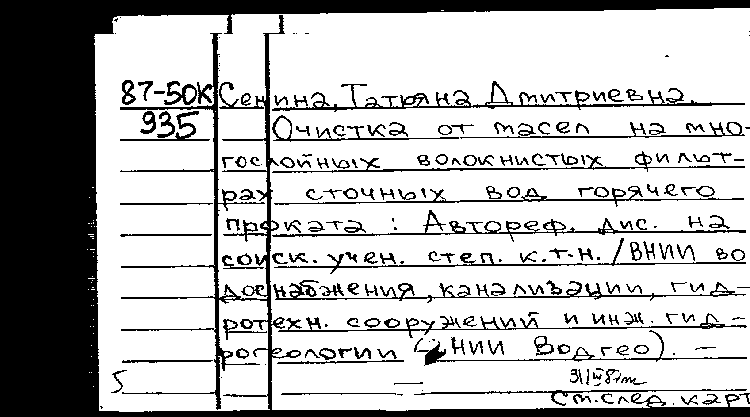 87-50К Сенина, Татьяна Дмитриевна.
935 Очистка от масел на мно-
гослойных волокнистых фильт-
рах сточных вод горячего
проката : Автореф. дис. на
соиск. учен. степ. к.т.н. /ВНИИ во
доснабжения, канализации, гид-
ротехн. сооружений и инж. гид-
рогеологии (ВНИИ Водгео). —
5
См. след. карт